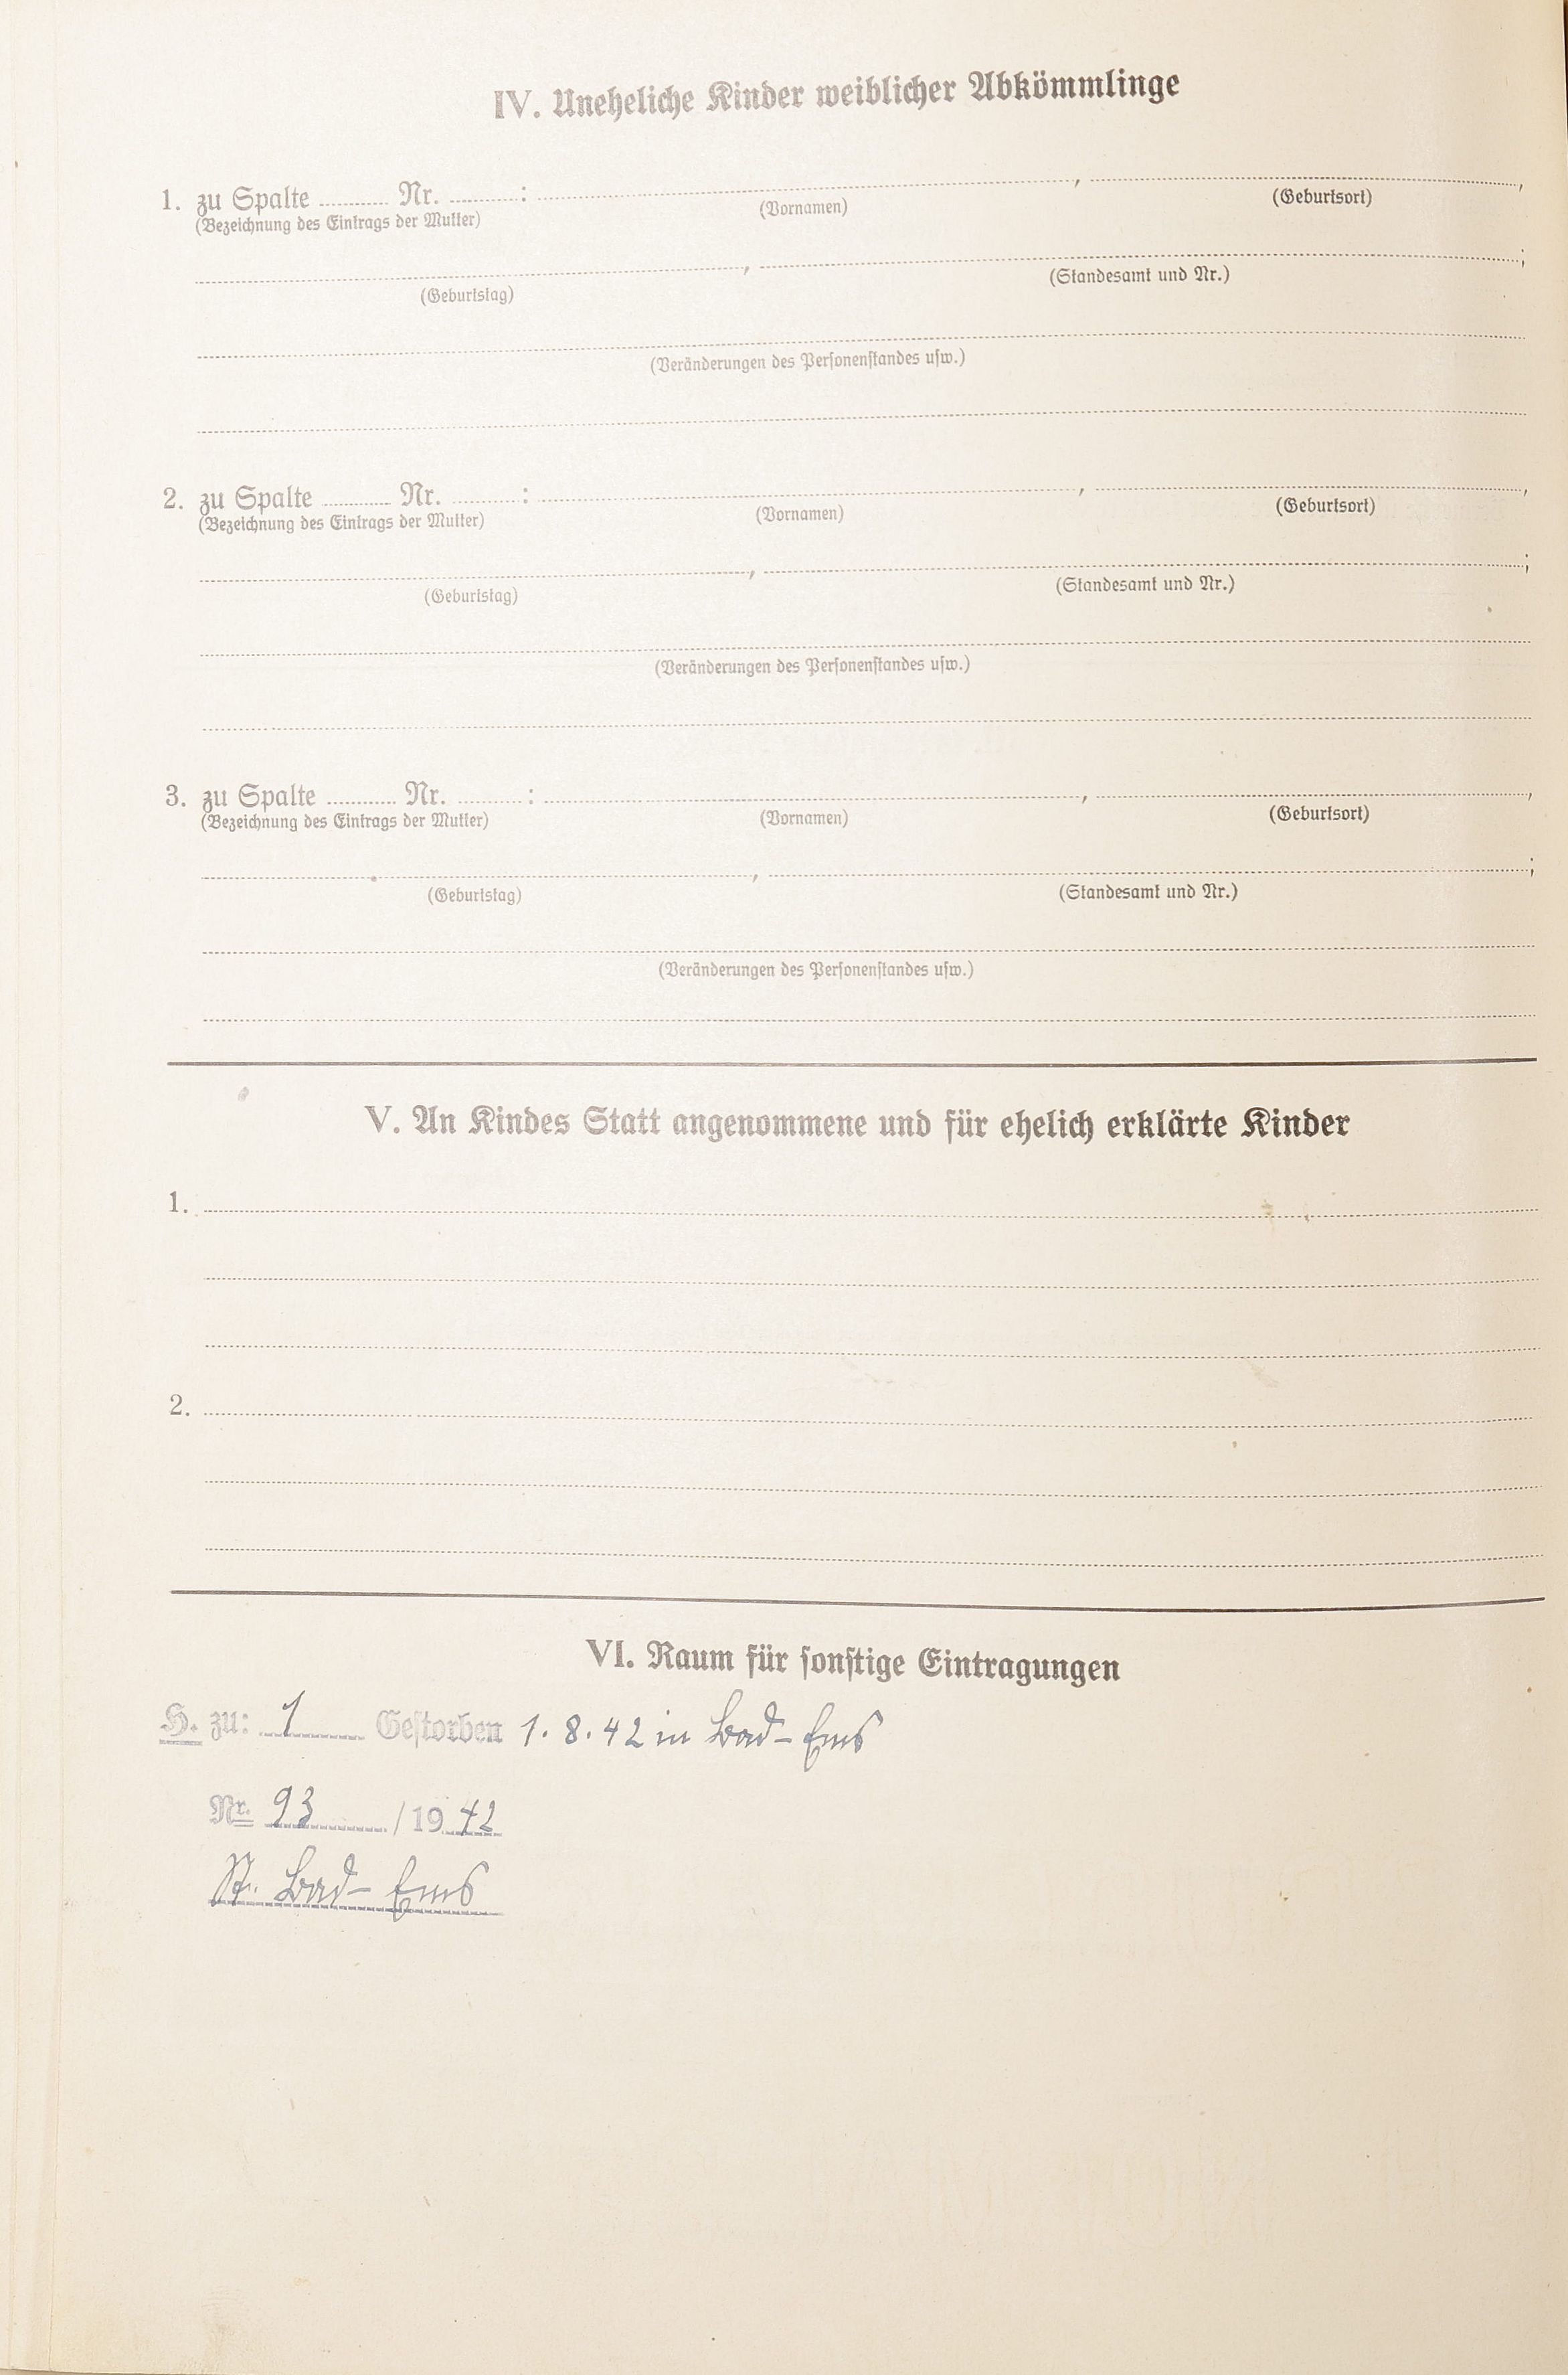 IV. Uneheliche Kinder weiblicher Abkömmlinge
1. zu Spalte ......... Nr. .........: ........................, ........................,
(Bezeichnung des Eintrags der Mutter) (Vornamen) (Geburtsort)
........................, ........................;
(Geburtstag) (Standesamt und Nr.)
(Veränderungen des Personenstandes usw.)
2. zu Spalte ......... Nr. .........: ........................, ........................,
(Bezeichnung des Eintrags der Mutter) (Vornamen) (Geburtsort)
........................, ........................;
(Geburtstag) (Standesamt und Nr.)
(Veränderungen des Personenstandes usw.)
3. zu Spalte ......... Nr. .........: ........................, ........................,
(Bezeichnung des Eintrags der Mutter) (Vornamen) (Geburtsort)
........................, ........................;
(Geburtstag) (Standesamt und Nr.)
(Veränderungen des Personenstandes usw.)
V. An Kindes Statt angenommene und für ehelich erklärte Kinder
1.
2.
VI. Raum für sonstige Eintragungen
H. zu: 1 Gestorben 1. 8. 42 in Bad-Ems
Nr. 93 / 1942
St. Bad-Ems